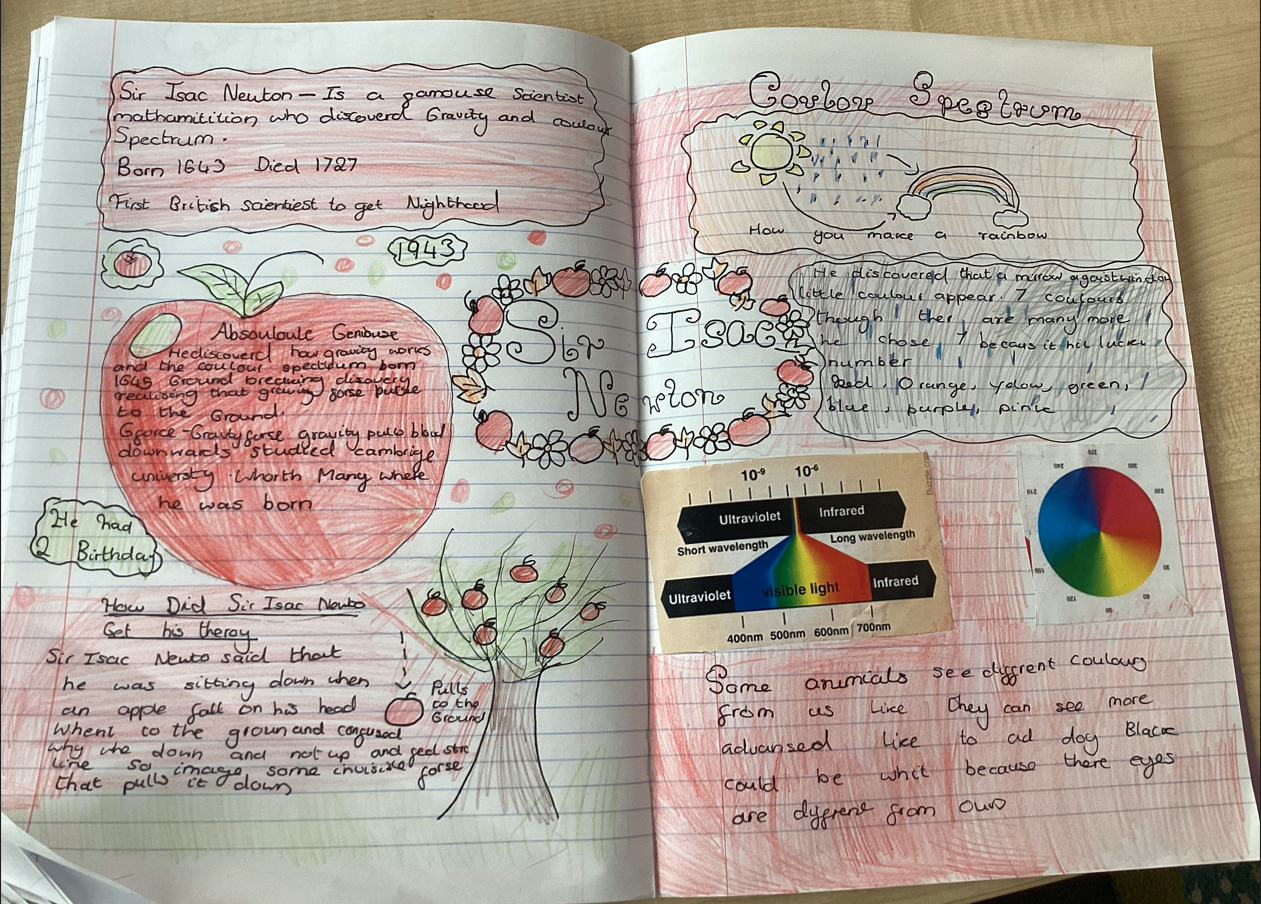 Sir Isac Neuton — Is a gamouse Scientist
mathamitition who discoverd Gravity and coulour
Spectrum.
Born 1643 Died 1727
First British scientiest to get Nighthood
1943
Absouloule Geniouse
He discoverd how gravity works
and the coulour spectrum born
1643 Ground breacing discovery
realising that gravity forse pulls
to the Ground.
G force - Gravity forse gravity pulls
downwards studied cambrige
university Whorth Many where
he was born
He had
2 Birthday
How Did Sir Isac Neuto
Get his theroy
Sir Isac Neuto said that
he was sitting down when
an apple fall on his head
Whent to the groun and confused
why down and not up and
line so image some forse
that pulls it down
Pulls
to the
Ground
Sir Isac
Newton
Coulour Spectrum
How you make a rainbow
He discovered that a mirrow agaist window
little coulour appear. 7 coulours
though ther are many more
he chose 7 becaus it hil lucky
number
Red, Orange, yelow, green,
blue, purple, pink
10-9 10-6
Ultraviolet Infrared
Short wavelength Long wavelength
Ultraviolet visible light Infrared
400nm 500nm 600nm 700nm
270
240 300
210 330
30
120 60
90
Some animals see diffrent coulours
from us like they can see more
advansed like to ad doy Black
could be whit because there eyes
are dyffrent from ours